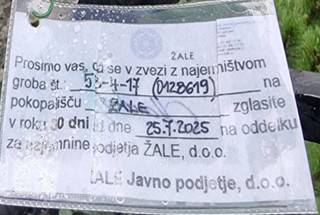 ŽALE
Prosimo vas, da se v zvezi z najemništvom
groba št.: 53-4-17 (D128619) na
pokopališču ŽALE zglasite
v roku 30 dni od dne 25.7.2025 na oddelku
za najemnine podjetja ŽALE, d.o.o.
ŽALE Javno podjetje, d.o.o.